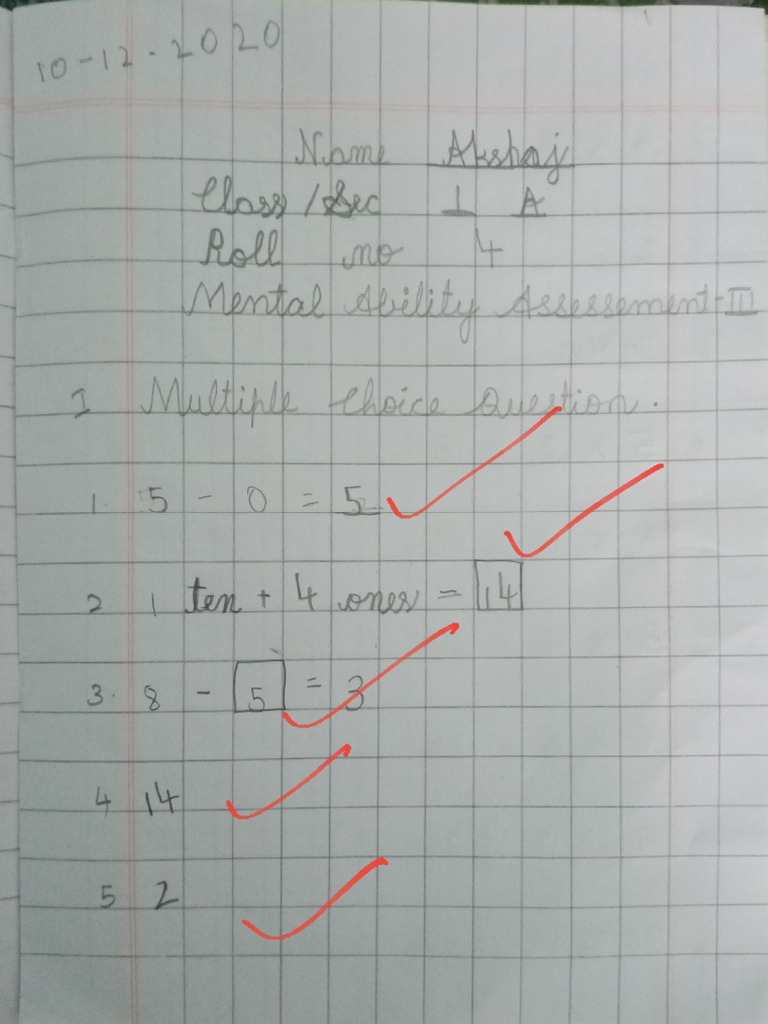 10-12-2020
Name Akshaj
Class/Sec 1 A
Roll no 4
Mental Ability Assessement-III
I Multiple Choice Question.
1. 5 - 0 = 5
2 1 ten + 4 ones = 14
3. 8 - 5 = 3
4 14
5 2